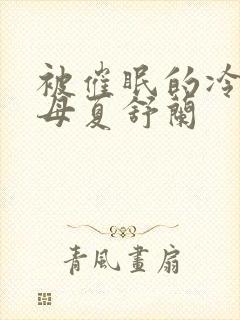 被催眠的冷
母夏舒蘭
青風畫扇